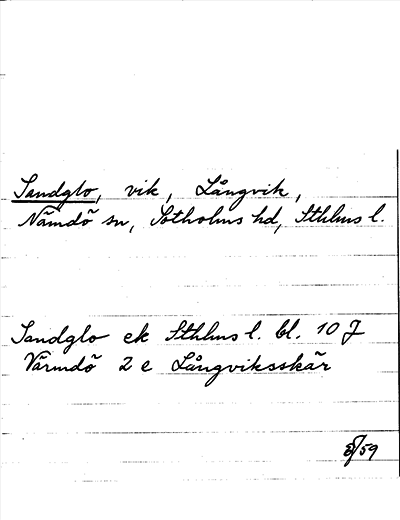 Sandglo, vik, Långvik,
Nämdö sn, Sotholms hd, Sthlms l.
Sandglo ek Sthlms l. bl. 10 J
Värmdö 2 e Långviksskär
/59